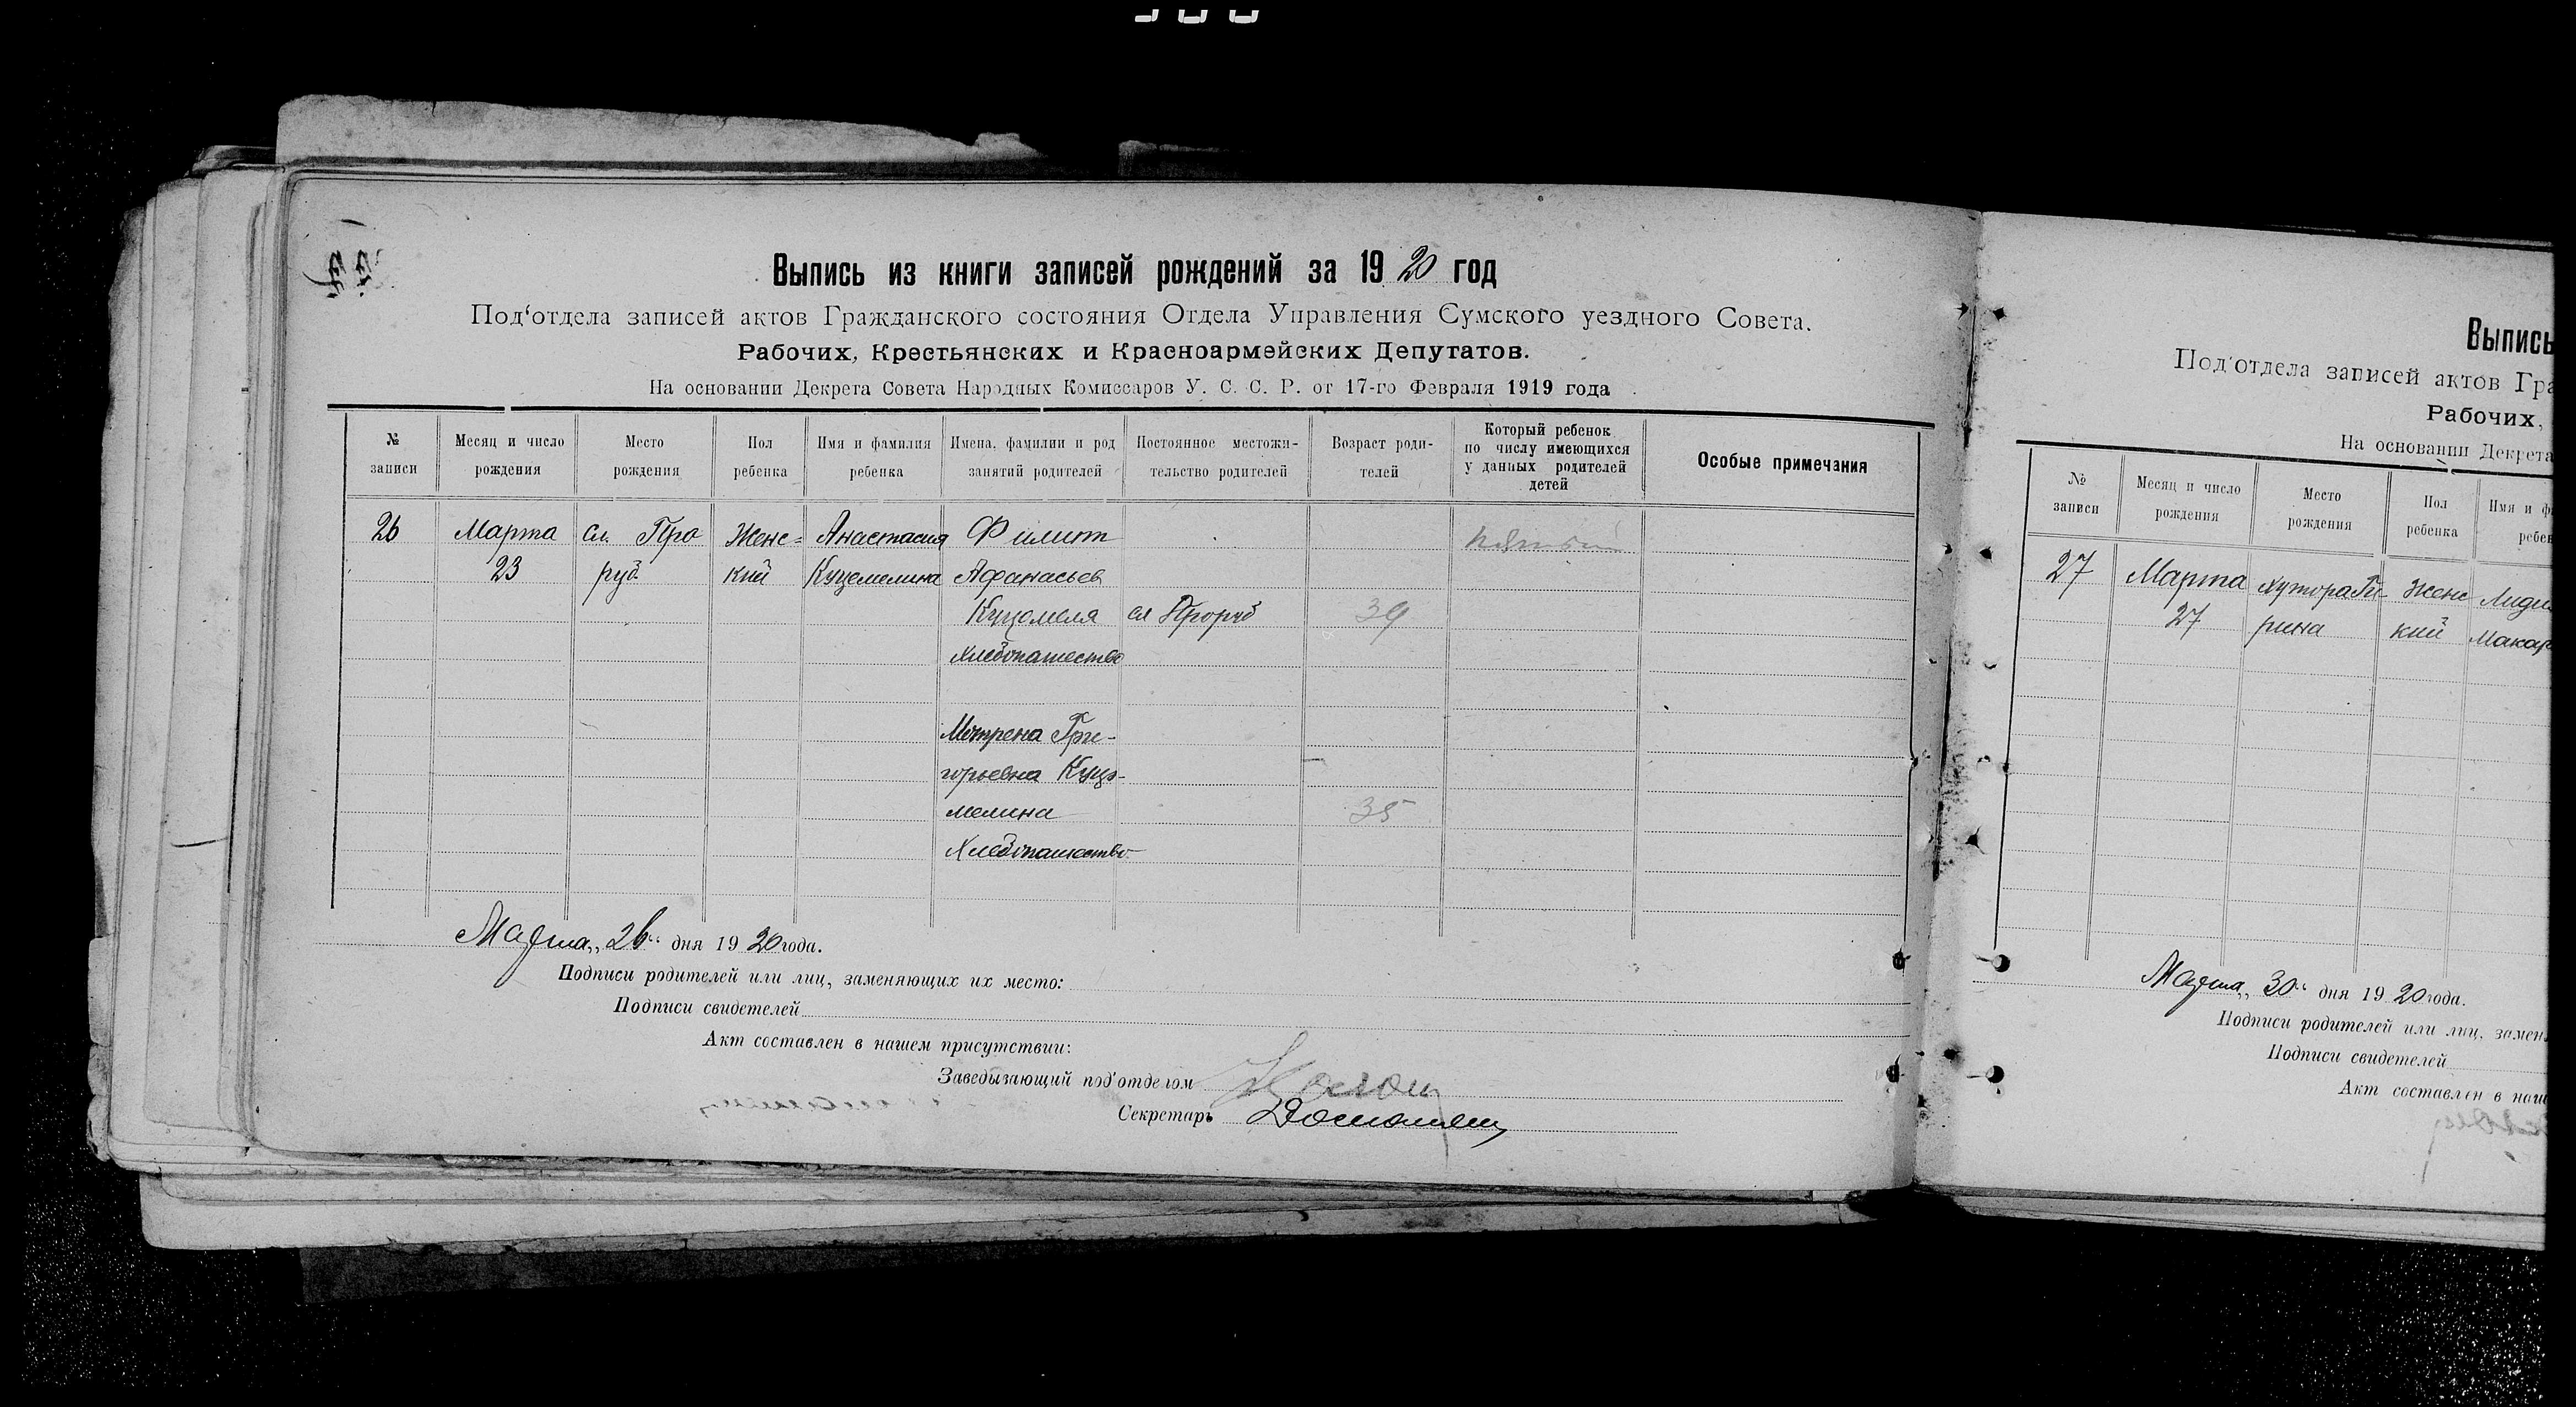 Выпись из книги записей рождений за 1920 год
Под‘отдела записей актов Гражданского состояния Отдела Управления Сумского уездного Совета.
Рабочих, Крестьянских и Красноармейских Депутатов.
На основании Декрета Совета Народных Комиссаров У. С. С. Р. от 17-го Февраля 1919 года
№ записи
Месяц и число рождения
Место рождения
Пол ребенка
Имя и фамилия ребенка
Имена, фамилии и род занятий родителей
Постоянное местожи-тельство родителей
Возраст роди-телей
Который ребенок по числу имеющихся у данных родителей детей
Особые примечания
26 Марта сл. Про Женс= Анастасия Филип пятый
23 руб. кий Куцемелина Афанасьев
Куцемеля сл Проруб 39
Хлебопашество
Мотрена Гри-
горьевна Куце-
мелина 35
Хлебопашество
Марта „26“ дня 1920 года.
Подписи родителей или лиц, заменяющих их место:
Подписи свидетелей
Акт составлен в нашем присутствии:
Заведывающий под‘отделом
Секретарь
Выпись
Под‘отдела записей актов Гра
Рабочих,
На основании Декрета
№ записи
Месяц и число рождения
Место рождения
Пол ребенка
Имя и ф
ребен
27 Марта Хутора Ги- Женс Лиди
27 рина кий Макар
Марта „30“ дня 1920 года.
Подписи родителей или лиц, замен
Подписи свидетелей
Акт составлен в наш